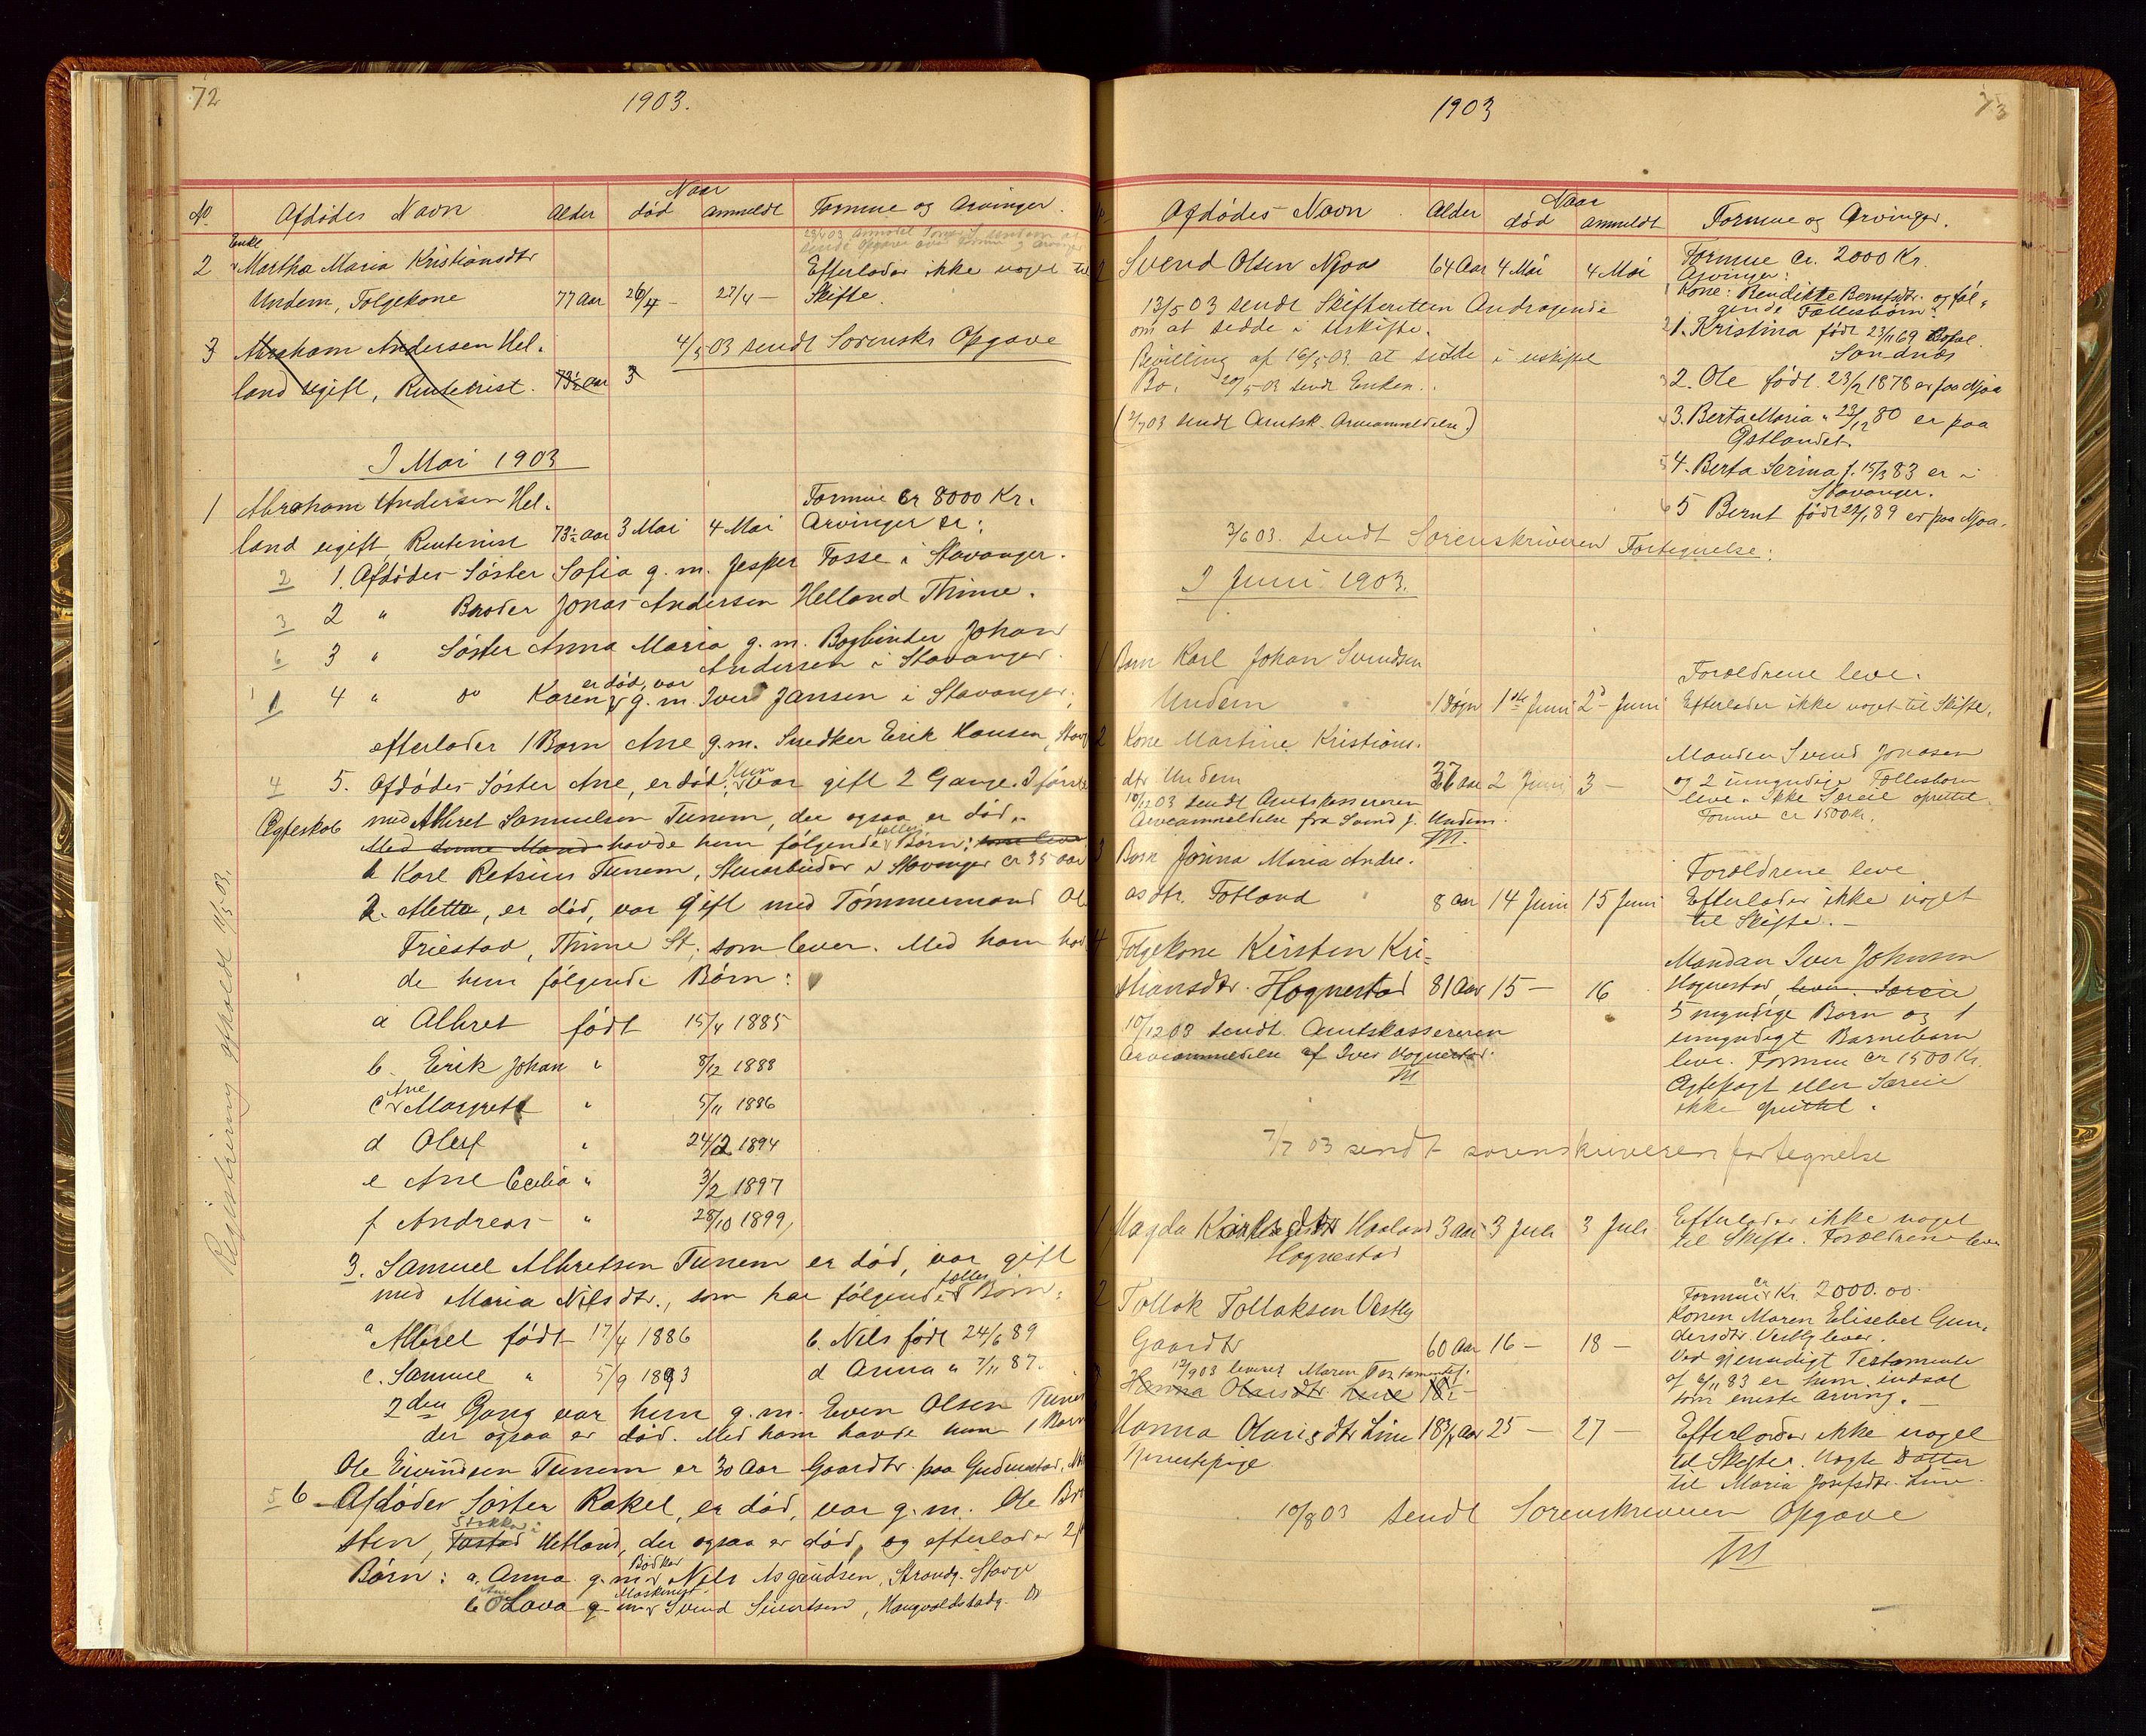 72
1903.
No. Afdødes Navn Alder Naar død anmeldt Formue og Arvinger.
Enke
2 Martha Maria Kristiansdtr Efterlader ikke noget til
Undem, Folgekone 77 Aar 26/4 - 27/4 - Skifte.
3 Abraham Andersen Hel-
4/5 03 sendt Sorenskr Opgave
land ugift, Rentenist. 73½ Aar 3
I Mai 1903
1 Abraham Andersen Hel- Formue Cr 8000 Kr.
land ugift Rentenist 73½ Aar 3 Mai 4 Mai Arvinger er:
2 1. Afdødes Søster Sofia g. m. Jesper Fosse i Stavanger.
3 2 " Broder Jonas Andersen Helland Thime.
6 3 " Søster Anna Maria g. m. Bogbinder Johan
Andersen i Stavanger.
er død, var
1 4 " do Karen g. m. Iver Jansen i Stavanger,
efterlader 1 Barn Ane g. m. Snedker Erik Hansen, Stav
4 5. Afdødes Søster Ane, er død. Hun var gift 2 Gange. I første
Ægteskab med Albret Samuelsen Tunem, der ogsaa er død.
Med denne Mand havde hun følgende fælles Børn: som lever
1. Karl Retsius Tunem, Stenarbeider i Stavanger cr 35 aar
2. Mette, er død, var gift med Tømmermand Ol
Friestad, Thime St. som lever. Med ham hav
de hun følgende Børn:
a Albret født 15/4 1885
b. Erik Johan " 8/12 1888
c Ane Margrete " 5/11 1886
d Oluf " 24/2 1894
e Ane Cecilia " 3/2 1897
f. Andreas " 28/10 1899,
3. Samuel Albretsen Tunem er død, var gift
med Maria Nilsdtr., som har følgende fælles Børn:
a Albret født 17/4 1886 b. Nils født 24/6 89
c. Samuel " 5/9 1893 d Anna " 7/11 87.
2den Gang var hun g. m. Even Olsen Tunem
der ogsaa er død. Med ham havde hun 1 Barn
Ole Eivindsen Tunem er 30 Aar Gaardbr. paa Gudmestad,
5 6 Afdødes Søster Rakel, er død, var g. m. Ole
sten, Stokka i Hetland, der ogsaa er død, og efterlader 2
Børn: a. Anna g. m. Bødker Nils Asgautsen, Strandg. Stavgr
b Lava g m Maskinist Svend Sivertsen, Haugvaldstadg. do
Registrering afholdt 11/5 03.
1903
73
Afdødes Navn. Alder Naar død anmeldt Formue og Arvinger.
Svend Olsen Njaa 64 Aar 4 Mai 4 Mai Formue Cr. 2000 Kr.
Arvinger:
13/5 03 sendt Skifteretten Andragende
om at sidde i Uskifte.
Kone: Bendikte Berntsdtr. og føl-
gende Fællesbørn:
Bevilling af 16/5 03. at sidde i uskiftet
Bo. 20/5 03 sendt Enken.
1. Kristina født 23/11 69 Bopæl.
Sandnæs
2. Ole født 23/2 1878 er paa Njaa
(2/7 03 sendt Amtsk. Arveanmeldelse.)
3. Berta Maria " 23/12 80 er paa
Østlandet.
4. Berta Serina f. 15/3 83 er i
Stavanger.
5 Bernt født 22/1 89 er paa Njaa.
3/6 03. sendt Sorenskriveren Fortegnelse.
I Juni 1903.
1 Barn Karl Johan Svendsen Foræeldrene leve.
Undem 1 Døgn 1ste Juni 2 Juni Efterlader ikke noget til Skifte.
2 Kone Martine Kristians- Manden Svend Jonasen
dtr Undem 37 Aar 2 Juni 3 - og 2 umyndige Fællesbørn
10/12 03 sendt Amtskassereren leve. Ikke Særeie oprettet
Arveanmeldelse fra Svend J. Undem. Formue cr 1500 Kr.
3 Barn Jorina Maria Andre- Forældrene leve
asdtr. Fotland 8 aar 14 Juni 15 Juni Efterlader ikke noget
til Skifte. -
4 Folgekone Kirsten Kri- Manden Iver Johnsen
stiansdtr. Hognestad 81 Aar 15 - 16 Hognestad lever. Særeie
5 myndige Børn og 1
10/12 03 sendt Amtskassereren umyndigt Barnebarn
Arveanmeldelse af Iver Hognestad. leve. Formue cr 1500 Kr.
Ægtepagt eller Særeie
ikke oprettet.
7/7 03 sendt sorenskriveren fortegnelse
1 Magda Karlsdtr Haaland 3 aar 3 Juli 3 Juli Efterlader ikke noget
Hognestad til Skifte. Forældrene leve
2 Tollak Tollaksen Vestly Formue cr Kr. 2000.00.
Gaardbr 60 Aar 16 - 18 - Konen Maren Elisebet Gun-
dersdtr. Vestly lever.
12/9 03 leveret Maren Testamentet. Ved gjensidigt Testamente
Hanna Olausdtr Line 18 - af 6/11 83 er hun indsat
som eneste Arving. -
Hanna Olausdtr Line 18¾ Aar 25 - 27 - Efterlader ikke noget
Tjenestepige til Skifte. Uægte Datter
til Maria Josefsdtr. Line.
10/8 03 sendt Sorenskriveren Opgave